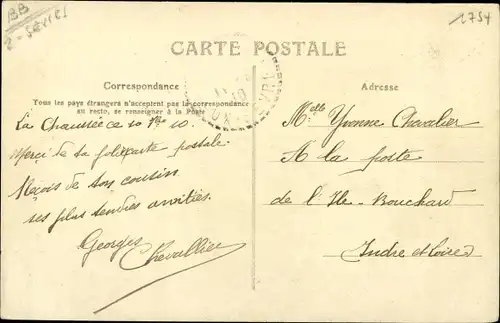 BB
2-sevres
1254
CARTE POSTALE
Correspondance
Tous les pays étrangers n'acceptent pas la correspondance
au recto, se renseigner à la Poste
La Chaussée ce 10 9bre 10.
Merci de ta jolie carte postale
Reçois de ton cousin
ses plus tendres amitiés.
Georges
Chevallier
Adresse
Melle Yvonne Chevalier
A la poste
de l'Ile-Bouchard
Indre et Loire